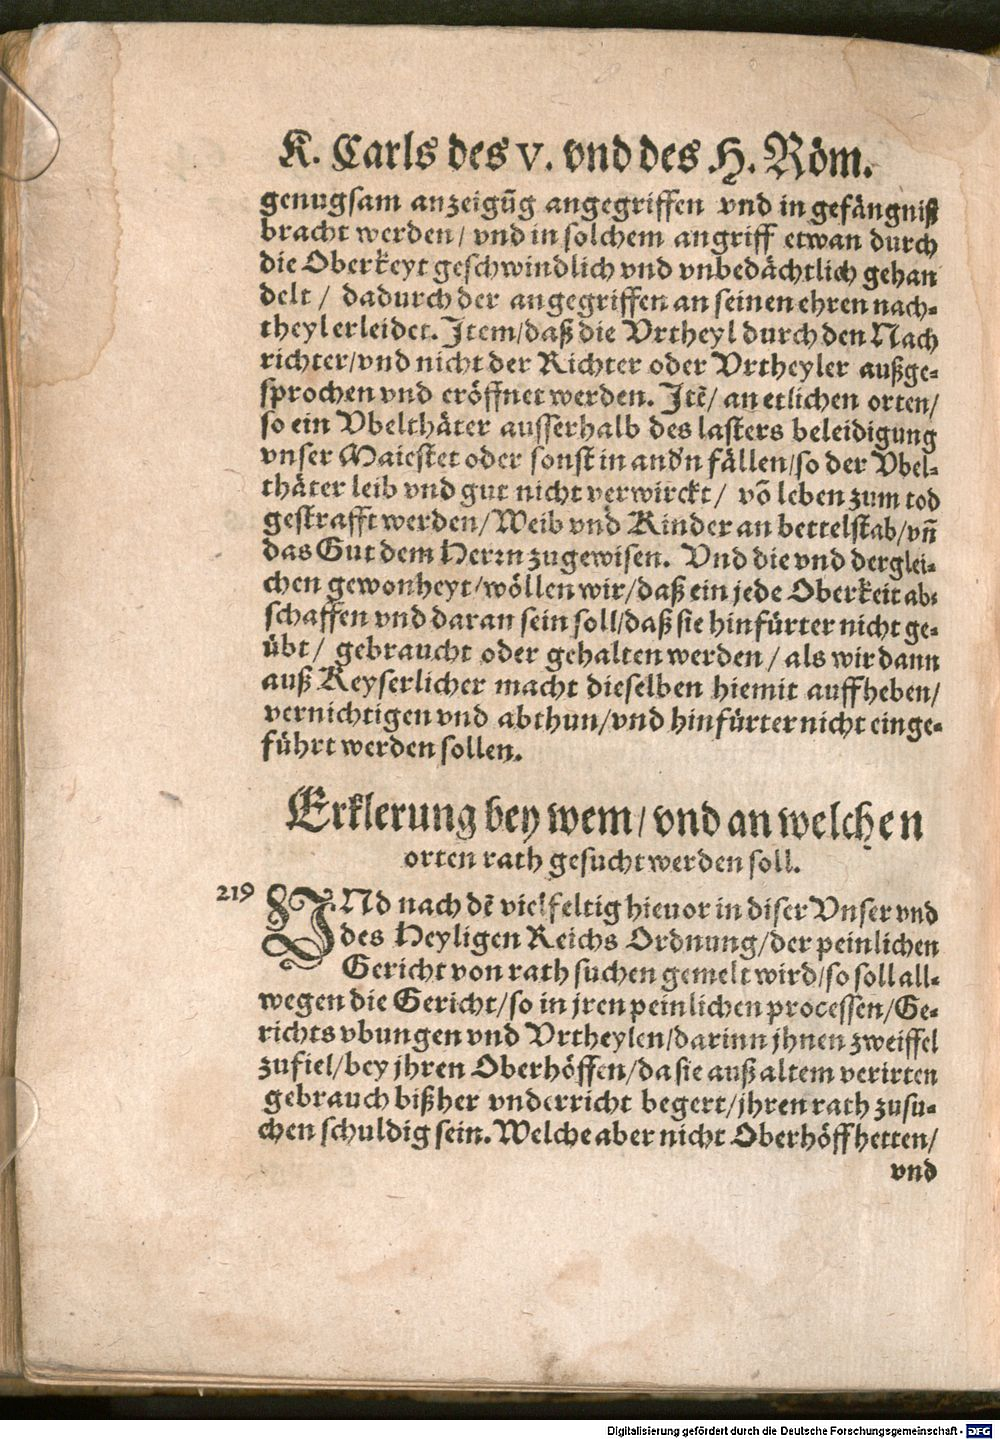 K. Carls des V. vnd des H. Röm.
genugsam anzeigũg angegriffen vnd in gefängniß
bracht werden / vnd in solchem angriff etwan durch
die Oberkeyt geschwindlich vnd vnbedächtlich gehan
delt / dadurch der angegriffen an seinen ehren nach-
theyl erleidet. Item/daß die Vrtheyl durch den Nach
richter/vnd nicht der Richter oder Vrtheyler außge-
sprochen vnd eröffnet werden. Itẽ/ an etlichen orten/
so ein Vbelthäter ausserhalb des lasters beleidigung
vnser Maiestet oder sonst in andn fällen/so der Vbel-
thäter leib vnd gut nicht verwirckt / võ leben zum tod
gestrafft werden/Weib vnd Kinder an bettelstab/vñ
das Gut dem Herrn zugewisen. Vnd die vnd derglei-
chen gewonheyt/wöllen wir/daß ein jede Oberkeit ab-
schaffen vnd daran sein soll/daß sie hinfürter nicht ge-
übt / gebraucht oder gehalten werden / als wir dann
auß Keyserlicher macht dieselben hiemit auffheben/
vernichtigen vnd abthun/vnd hinfürter nicht einge-
führt werden sollen.
Erklerung bey wem/ vnd an welchen
orten rath gesucht werden soll.
219 VNd nach dẽ vielfeltig hieuor in diser Vnser vnd
des Heyligen Reichs Ordnung/der peinlichen
Gericht von rath suchen gemelt wird/so soll all-
wegen die Gericht/so in jren peinlichen processen/Ge-
richts vbungen vnd Vrtheylen/darinn jhnen zweiffel
zufiel/bey jhren Oberhöffen/da sie auß altem verirten
gebrauch bißher vnderricht begert/jhren rath zusu-
chen schuldig sein. Welche aber nicht Oberhöff hetten/
vnd
Digitalisierung gefördert durch die Deutsche Forschungsgemeinschaft - DFG